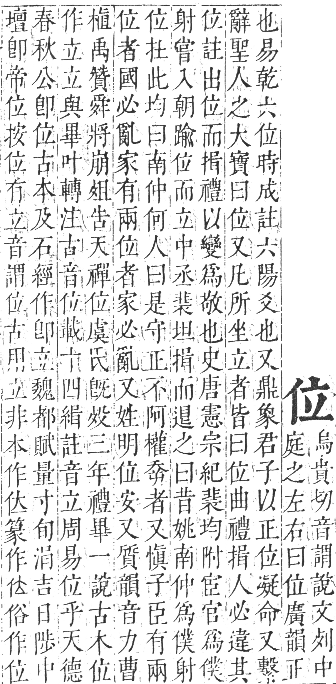 位
烏貴切音謂說文列中
庭之左右曰位廣韻正
也易乾六位時成註六陽爻也又鼎象君子以正位凝命又繫
辭聖人之大寶曰位又凡所坐立者皆曰位曲禮揖人必違其
位註出位而揖禮以變爲敬也史唐憲宗紀裴均附宦官爲僕
射嘗入朝踰位而立中丞裴坦揖而退之曰昔姚南仲爲僕射
位在此均曰南仲何人曰是守正不阿權者又愼子臣有兩
位者國必亂家有兩位者家必亂又姓明位安又質韻音力曹
植禹贊舜將崩殂告天禪位虞氏旣歿三年禮畢一說古本位
作立立與畢叶轉注古音位載十四緝註音立周易位乎天德
春秋公卽位古本及石經作卽立魏都賦量寸旬涓吉日陟中
壇卽帝位按位有立音謂位古用立非本作篆作俗作位